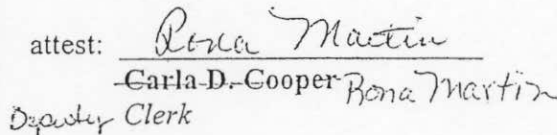 attest: Rona Martin
Carla D. Cooper Rona Martin
Deputy Clerk